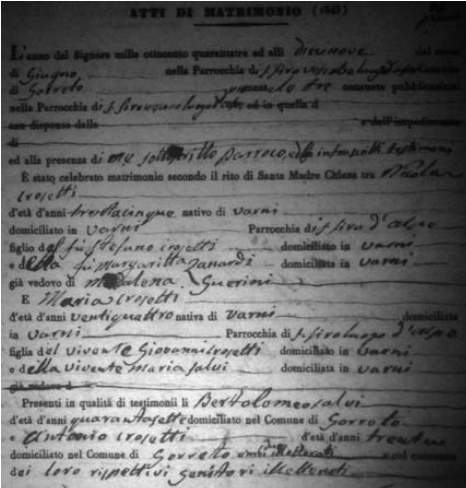 ATTI DI MATRIMONIO (1843)
L'anno del Signore mille ottocento quarantatre ed alli diecinove del mese
di Giugno nella Parrocchia di S. Siro
di Gorreto tre consuete pubblicazioni
nella Parrocchia di S. Siro ed in quella d
con dispensa dalle e dall'impedimento
di
ed alla presenza di me sottoscritto Parroco, e di testimoni
È stato celebrato matrimonio secondo il rito di Santa Madre Chiesa tra Nicola
Crosetti
d'età d'anni trentacinque nativo di Varni
domiciliato in Varni Parrocchia di S. Siro
figlio del fù Stefano Crosetti domiciliato in Varni
e della fù Margaritta Zanardi domiciliata in Varni
già vedovo di Madalena Guerini
E Maria Crosetti
d'età d'anni ventiquattro nativa di Varni domiciliata
in Varni Parrocchia di S. Siro
figlia del vivente Giovanni Crosetti domiciliato in Varni
e della vivente Maria Salvi domiciliata in Varni
già vedova d
Presenti in qualità di testimonii li Bertolomeo Salvi
d'età d'anni quarantasette domiciliato nel Comune di Gorreto
e Antonio Crosetti d'età d'anni
domiciliato nel Comune di Gorreto ambi illetterati e col consenso
dei loro rispettivi genitori illetterati